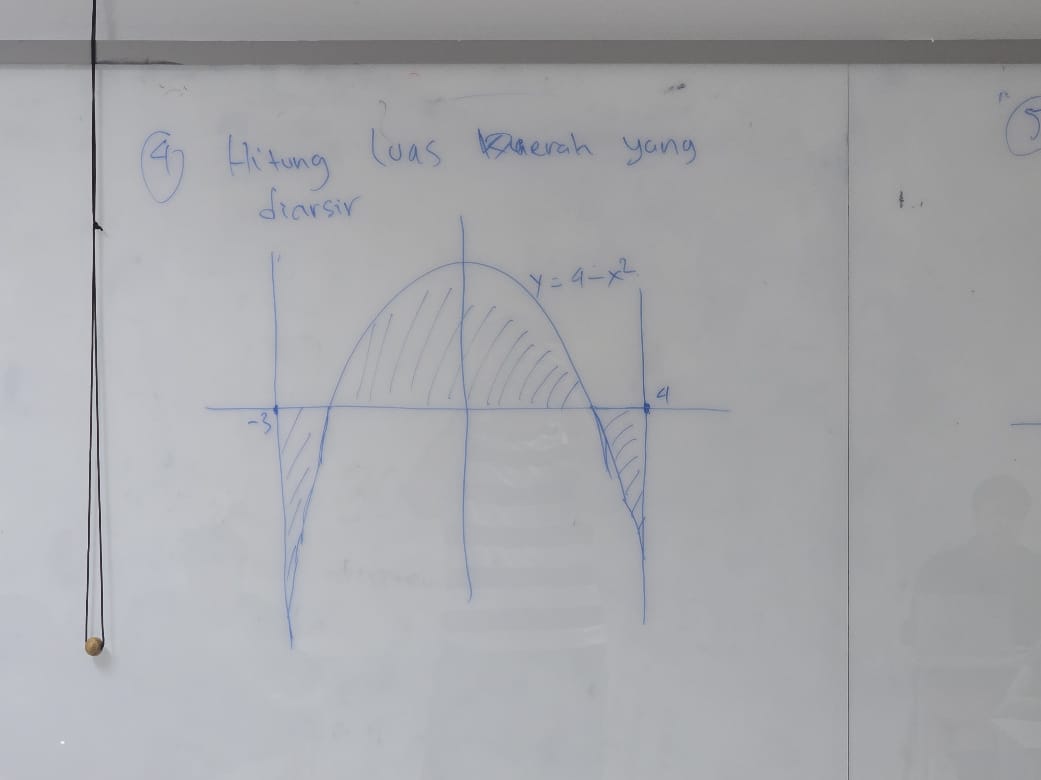 4 Hitung luas daerah yang
diarsir
y = 4 - x²
-3
4
5